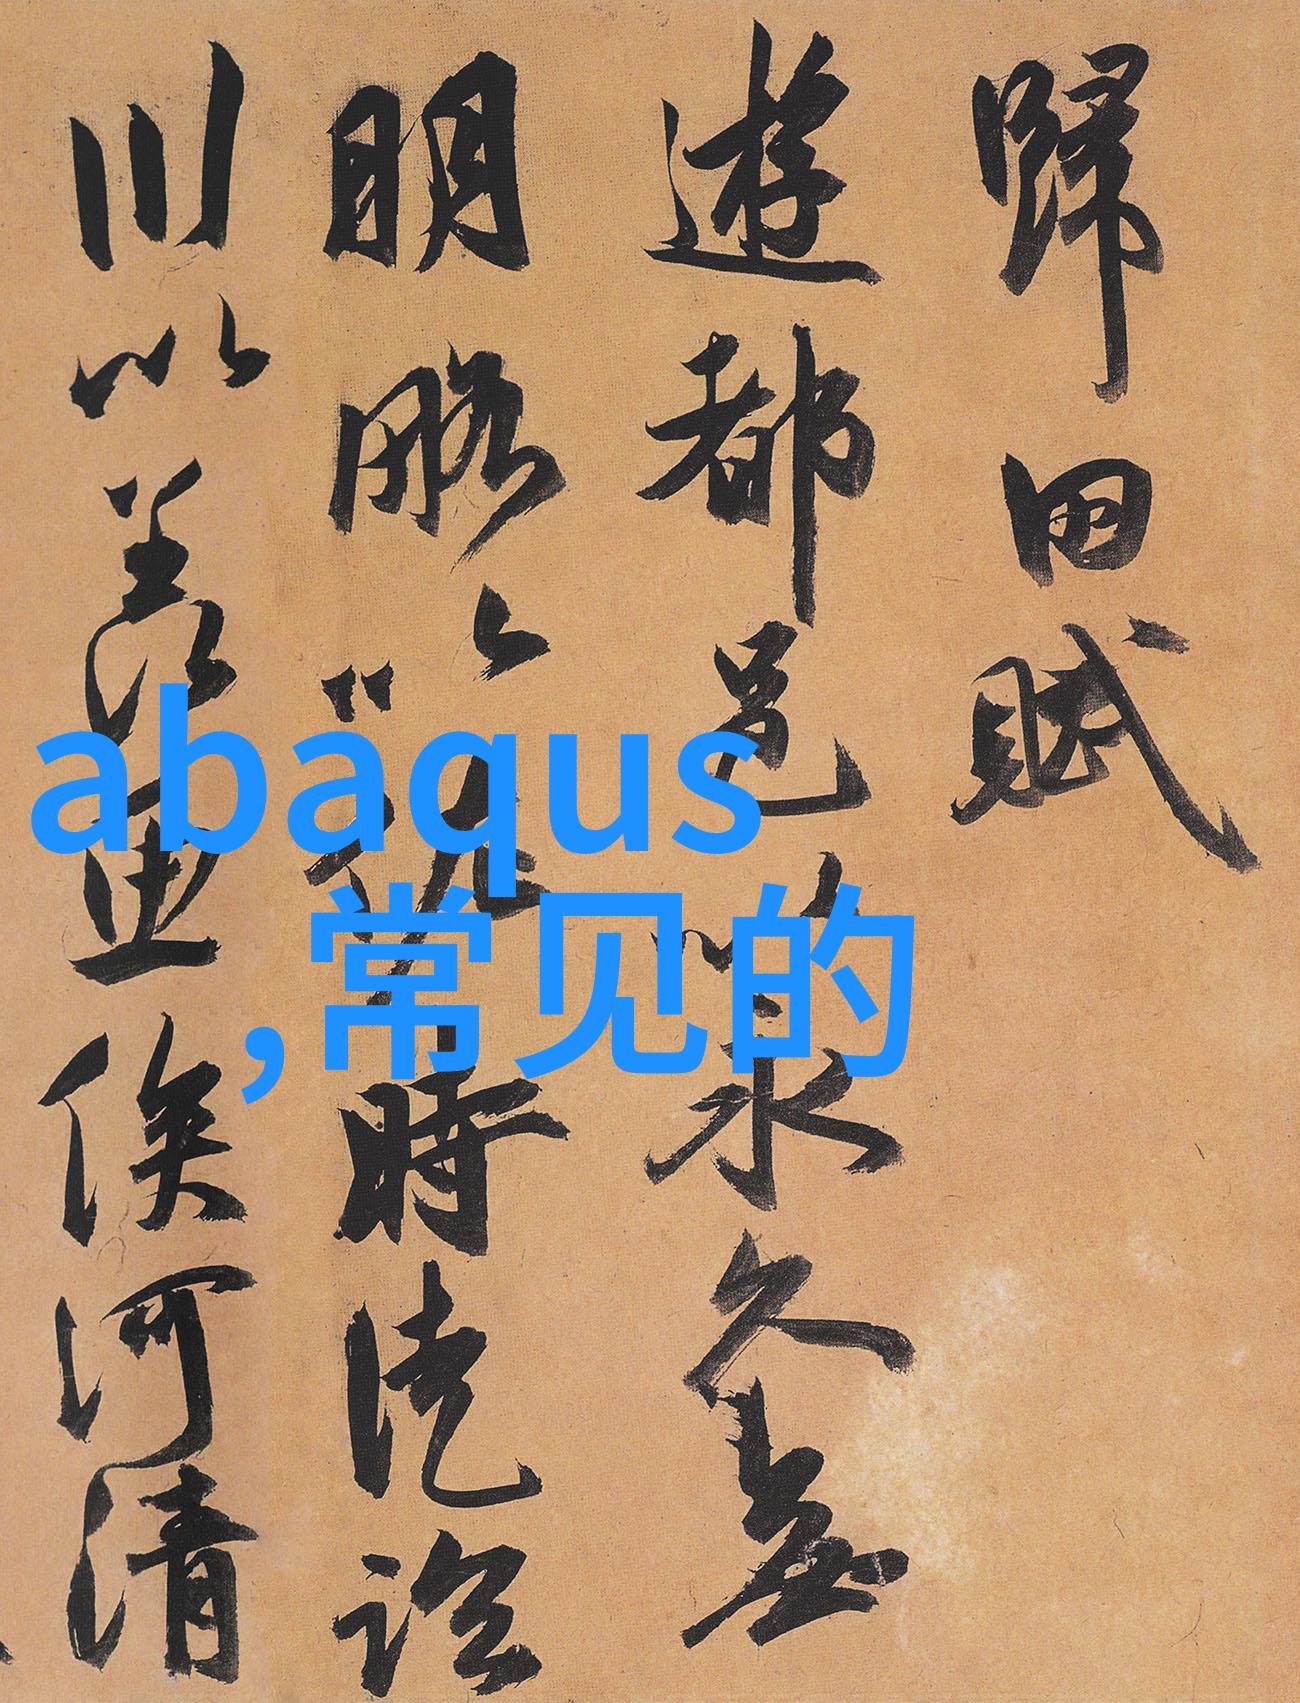 歸田賦
遊都邑以永久無
明略以佐時徒臨
川以羨魚俟河清
abaqus
,常见的